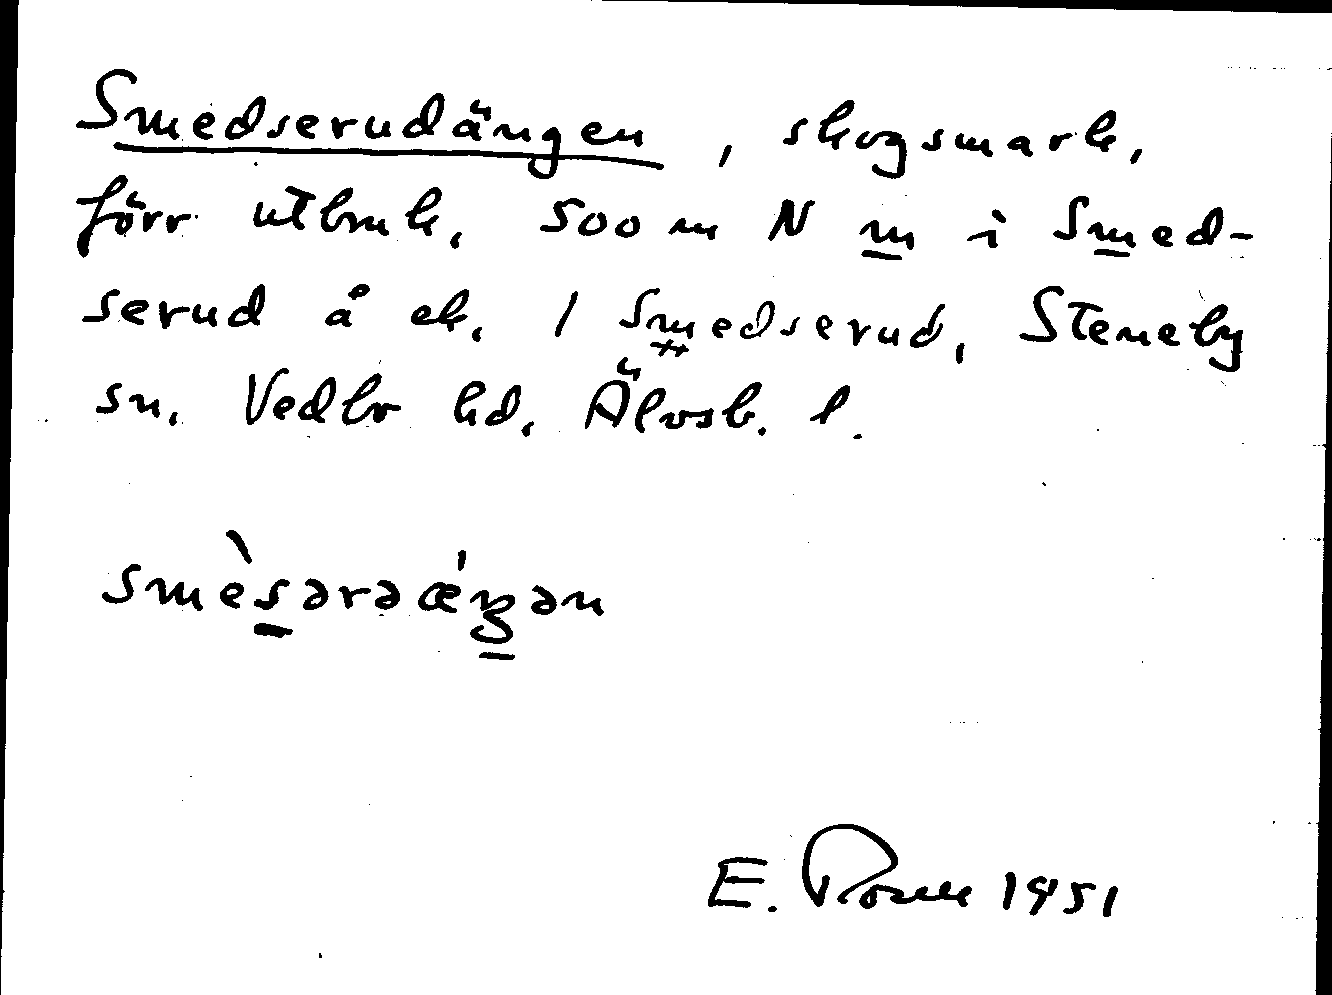 Smedserudängen, skogsmark,
förr utbruk, 500 m N m i Smed-
serud å ek. 1 Smedserud, Steneby
sn. Vedbo hd. Älvsb. l.
smèsərəǽŋən
E. Rosell 1951